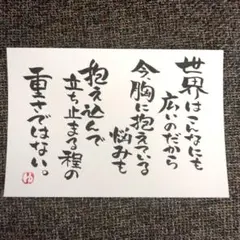 世界はこんなにも
広いのだから
今、胸に抱えている
悩みも
抱え込んで
立ち止まる程の
重さではない。